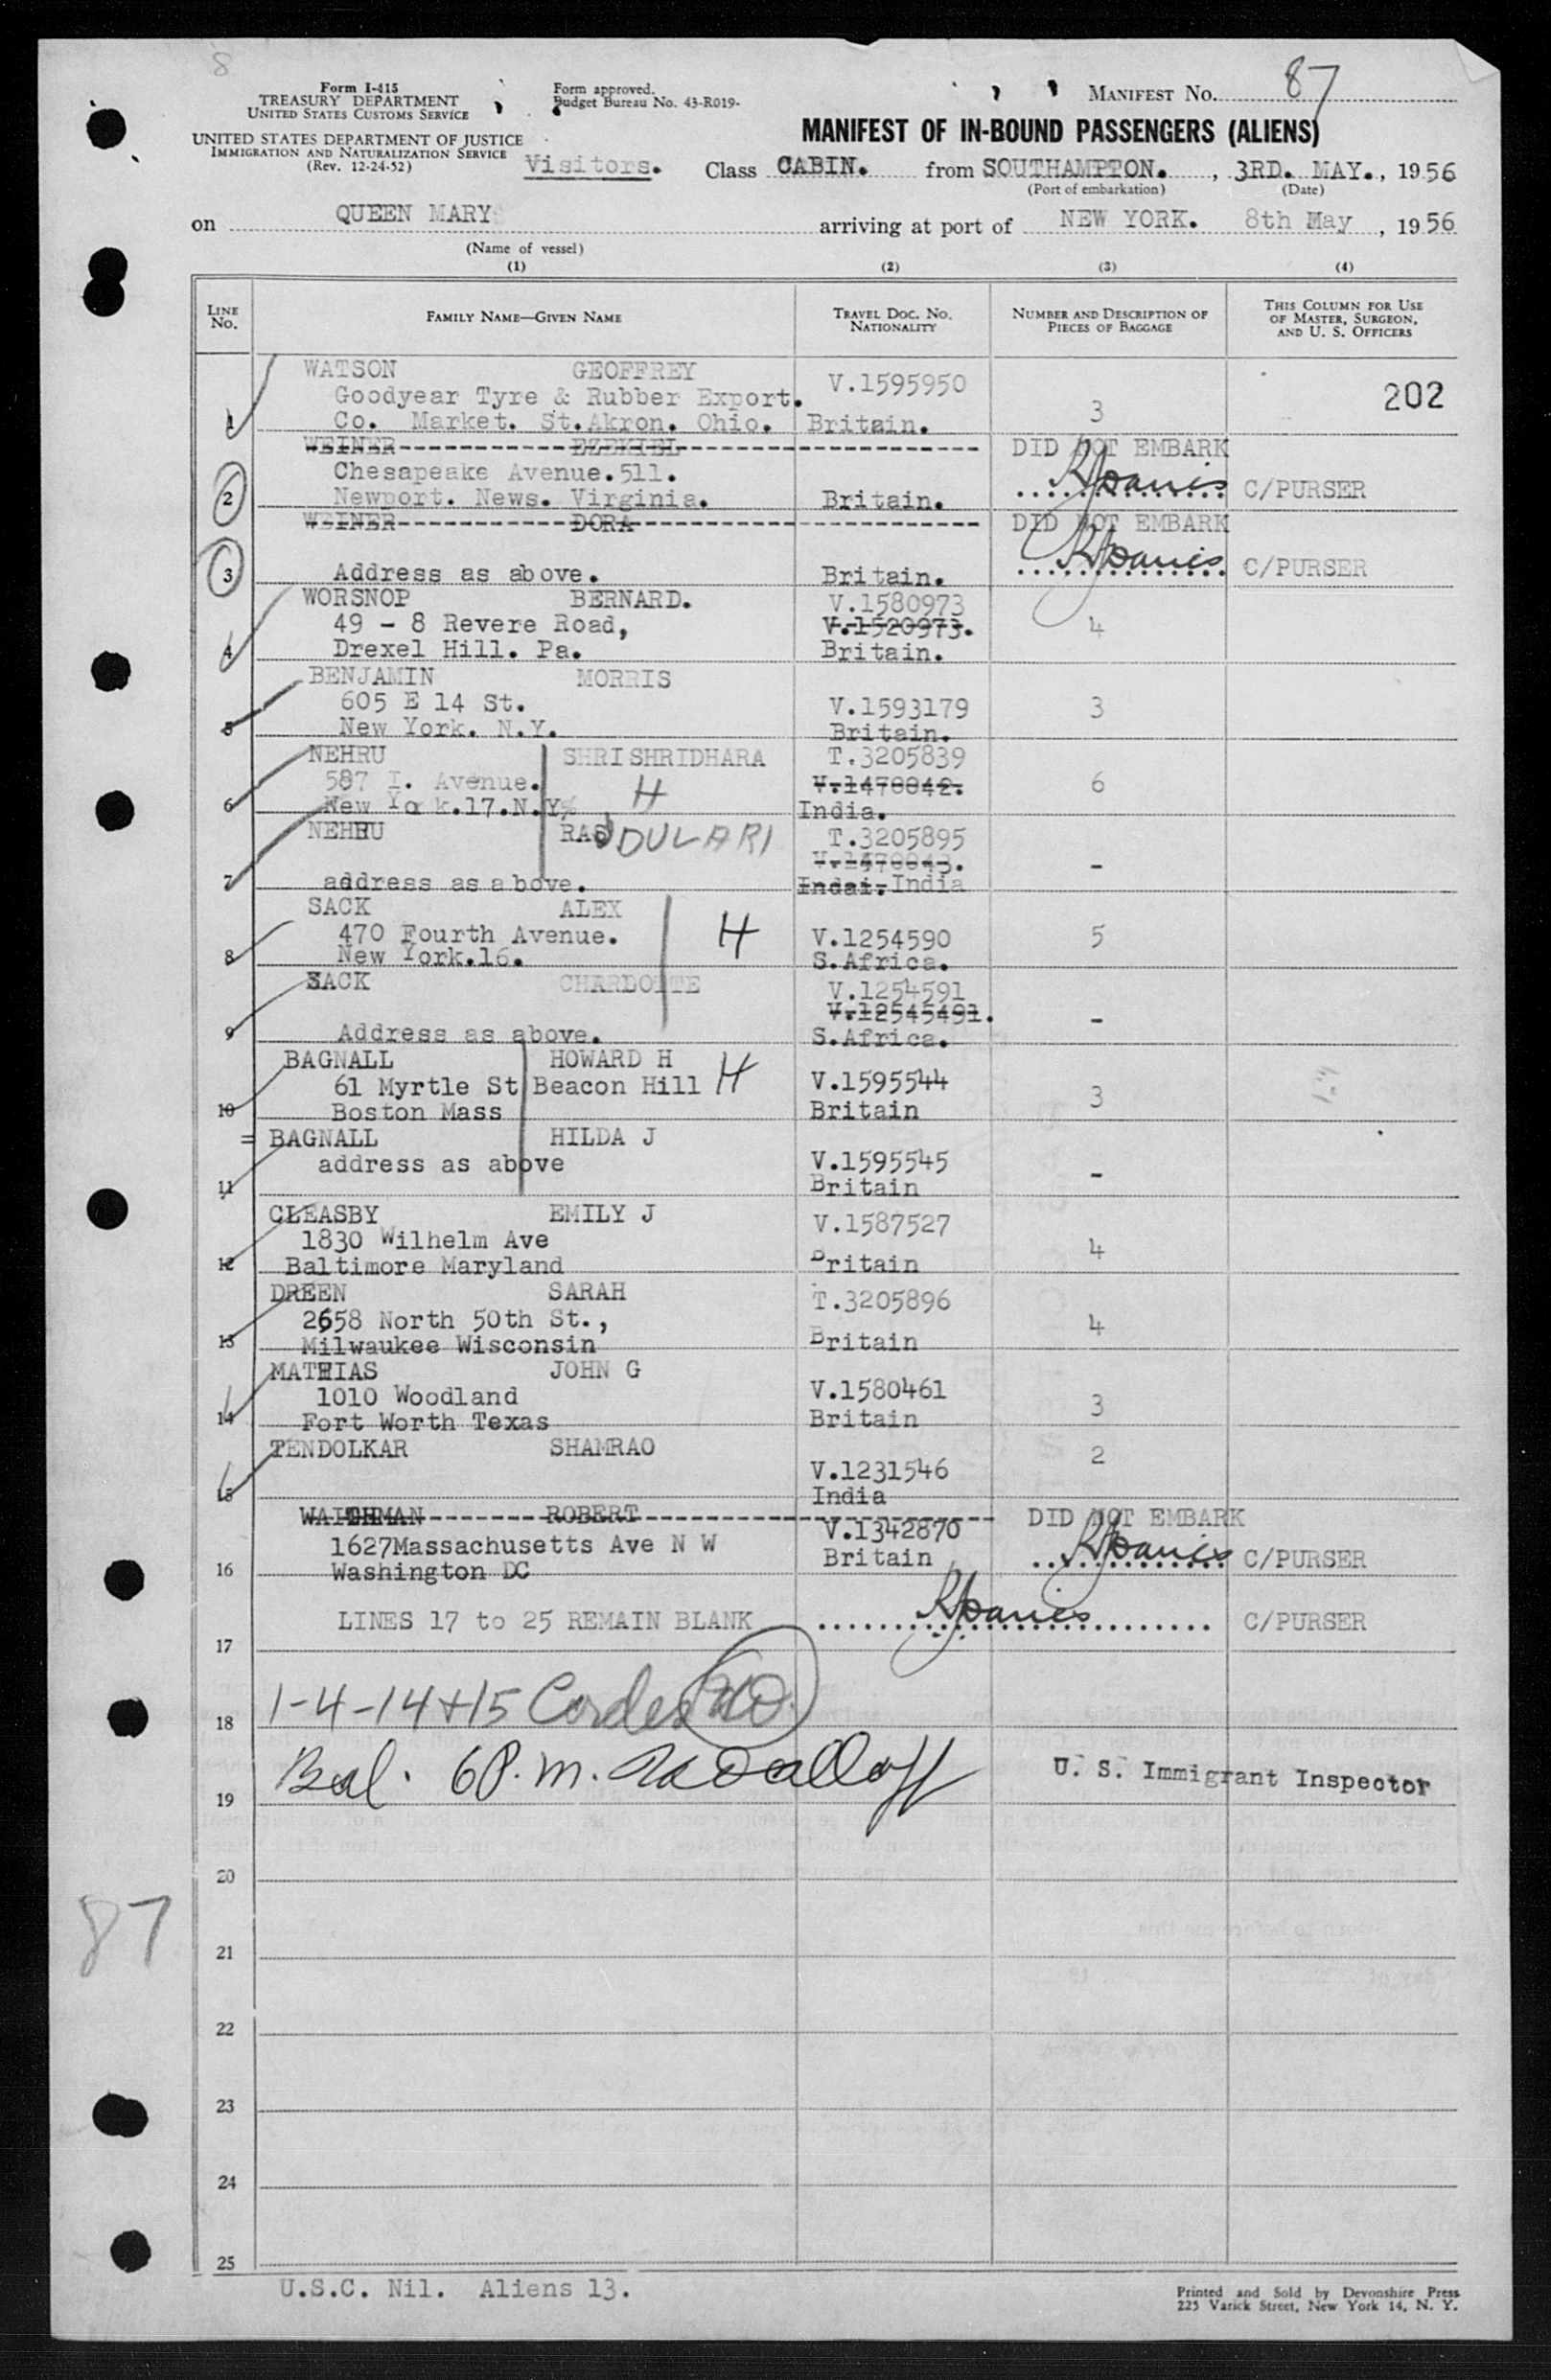 8
Form I-415
TREASURY DEPARTMENT
UNITED STATES CUSTOMS SERVICE
Form approved.
Budget Bureau No. 43-R019-
MANIFEST NO. 87
UNITED STATES DEPARTMENT OF JUSTICE
IMMIGRATION AND NATURALIZATION SERVICE
(Rev. 12-24-52)
MANIFEST OF IN-BOUND PASSENGERS (ALIENS)
Visitors. Class CABIN. from SOUTHAMPTON., 3RD. MAY., 1956
(Port of embarkation) (Date)
on QUEEN MARY arriving at port of NEW YORK. 8th May, 1956
(Name of vessel)
(1) (2) (3) (4)
LINE No. FAMILY NAME—GIVEN NAME TRAVEL DOC. NO. NATIONALITY NUMBER AND DESCRIPTION OF PIECES OF BAGGAGE THIS COLUMN FOR USE OF MASTER, SURGEON, AND U. S. OFFICERS
WATSON GEOFFREY V.1595950 202
Goodyear Tyre & Rubber Export.
1 Co. Market. St.Akron. Ohio. Britain. 3
WEINER EZEKIEL DID NOT EMBARK
Chesapeake Avenue.511.
2 Newport. News. Virginia. Britain. C/PURSER
WEINER DORA DID NOT EMBARK
3 Address as above. Britain. C/PURSER
WORSNOP BERNARD. V.1580973
49 - 8 Revere Road, V.1520973. 4
4 Drexel Hill. Pa. Britain.
BENJAMIN MORRIS
605 E 14 St. V.1593179 3
5 New York. N.Y. Britain.
NEHRU SHRISHRIDHARA T.3205839
587 I. Avenue. H V.1470042. 6
6 New Yo k.17.N.Y. India.
NEHRU RAJ DULARI T.3205895
V.1470043. -
7 address as above. Indai. India
SACK ALEX
470 Fourth Avenue. H V.1254590 5
8 New York.16. S.Africa.
SACK CHARLOTTE V.1254591
V.12545491. -
9 Address as above. S.Africa.
BAGNALL HOWARD H H
61 Myrtle St Beacon Hill V.1595544
10 Boston Mass Britain 3
= BAGNALL HILDA J
address as above V.1595545 -
11 Britain
CLEASBY EMILY J V.1587527
1830 Wilhelm Ave 4
12 Baltimore Maryland Britain
DREEN SARAH T.3205896
2658 North 50th St., 4
13 Milwaukee Wisconsin Britain
MATHIAS JOHN G
1010 Woodland V.1580461
14 Fort Worth Texas Britain 3
TENDOLKAR SHAMRAO 2
V.1231546
15 India
WAITHMAN ROBERT DID NOT EMBARK
1627Massachusetts Ave N W V.1342870
16 Washington DC Britain C/PURSER
LINES 17 to 25 REMAIN BLANK C/PURSER
17
18 1-4-14+15
19 Bal. 6 P.m. U. S. Immigrant Inspector
20
87
21
22
23
24
25
U.S.C. Nil. Aliens 13.
Printed and Sold by Devonshire Press
225 Varick Street, New York 14, N. Y.